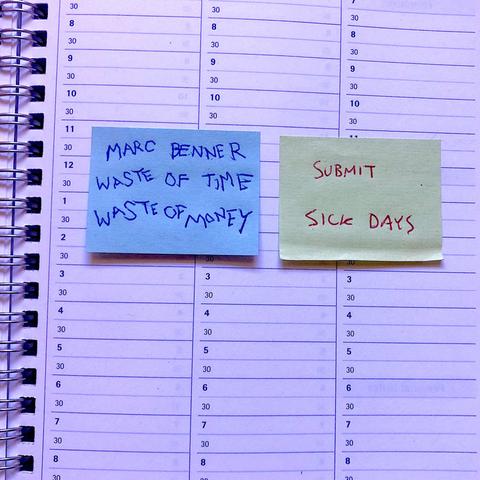 MARC BENNER
WASTE OF TIME
WASTE OF MONEY
SUBMIT
SICK DAYS
30
8
30
9
30
10
30
11
30
12
30
1
30
2
30
3
30
4
30
5
30
6
30
7
30
8
30
8
30
9
30
10
30
11
3
30
4
30
5
30
6
30
7
30
8
7
30
8
30
9
30
10
30
11
3
30
4
30
5
30
6
30
7
30
8